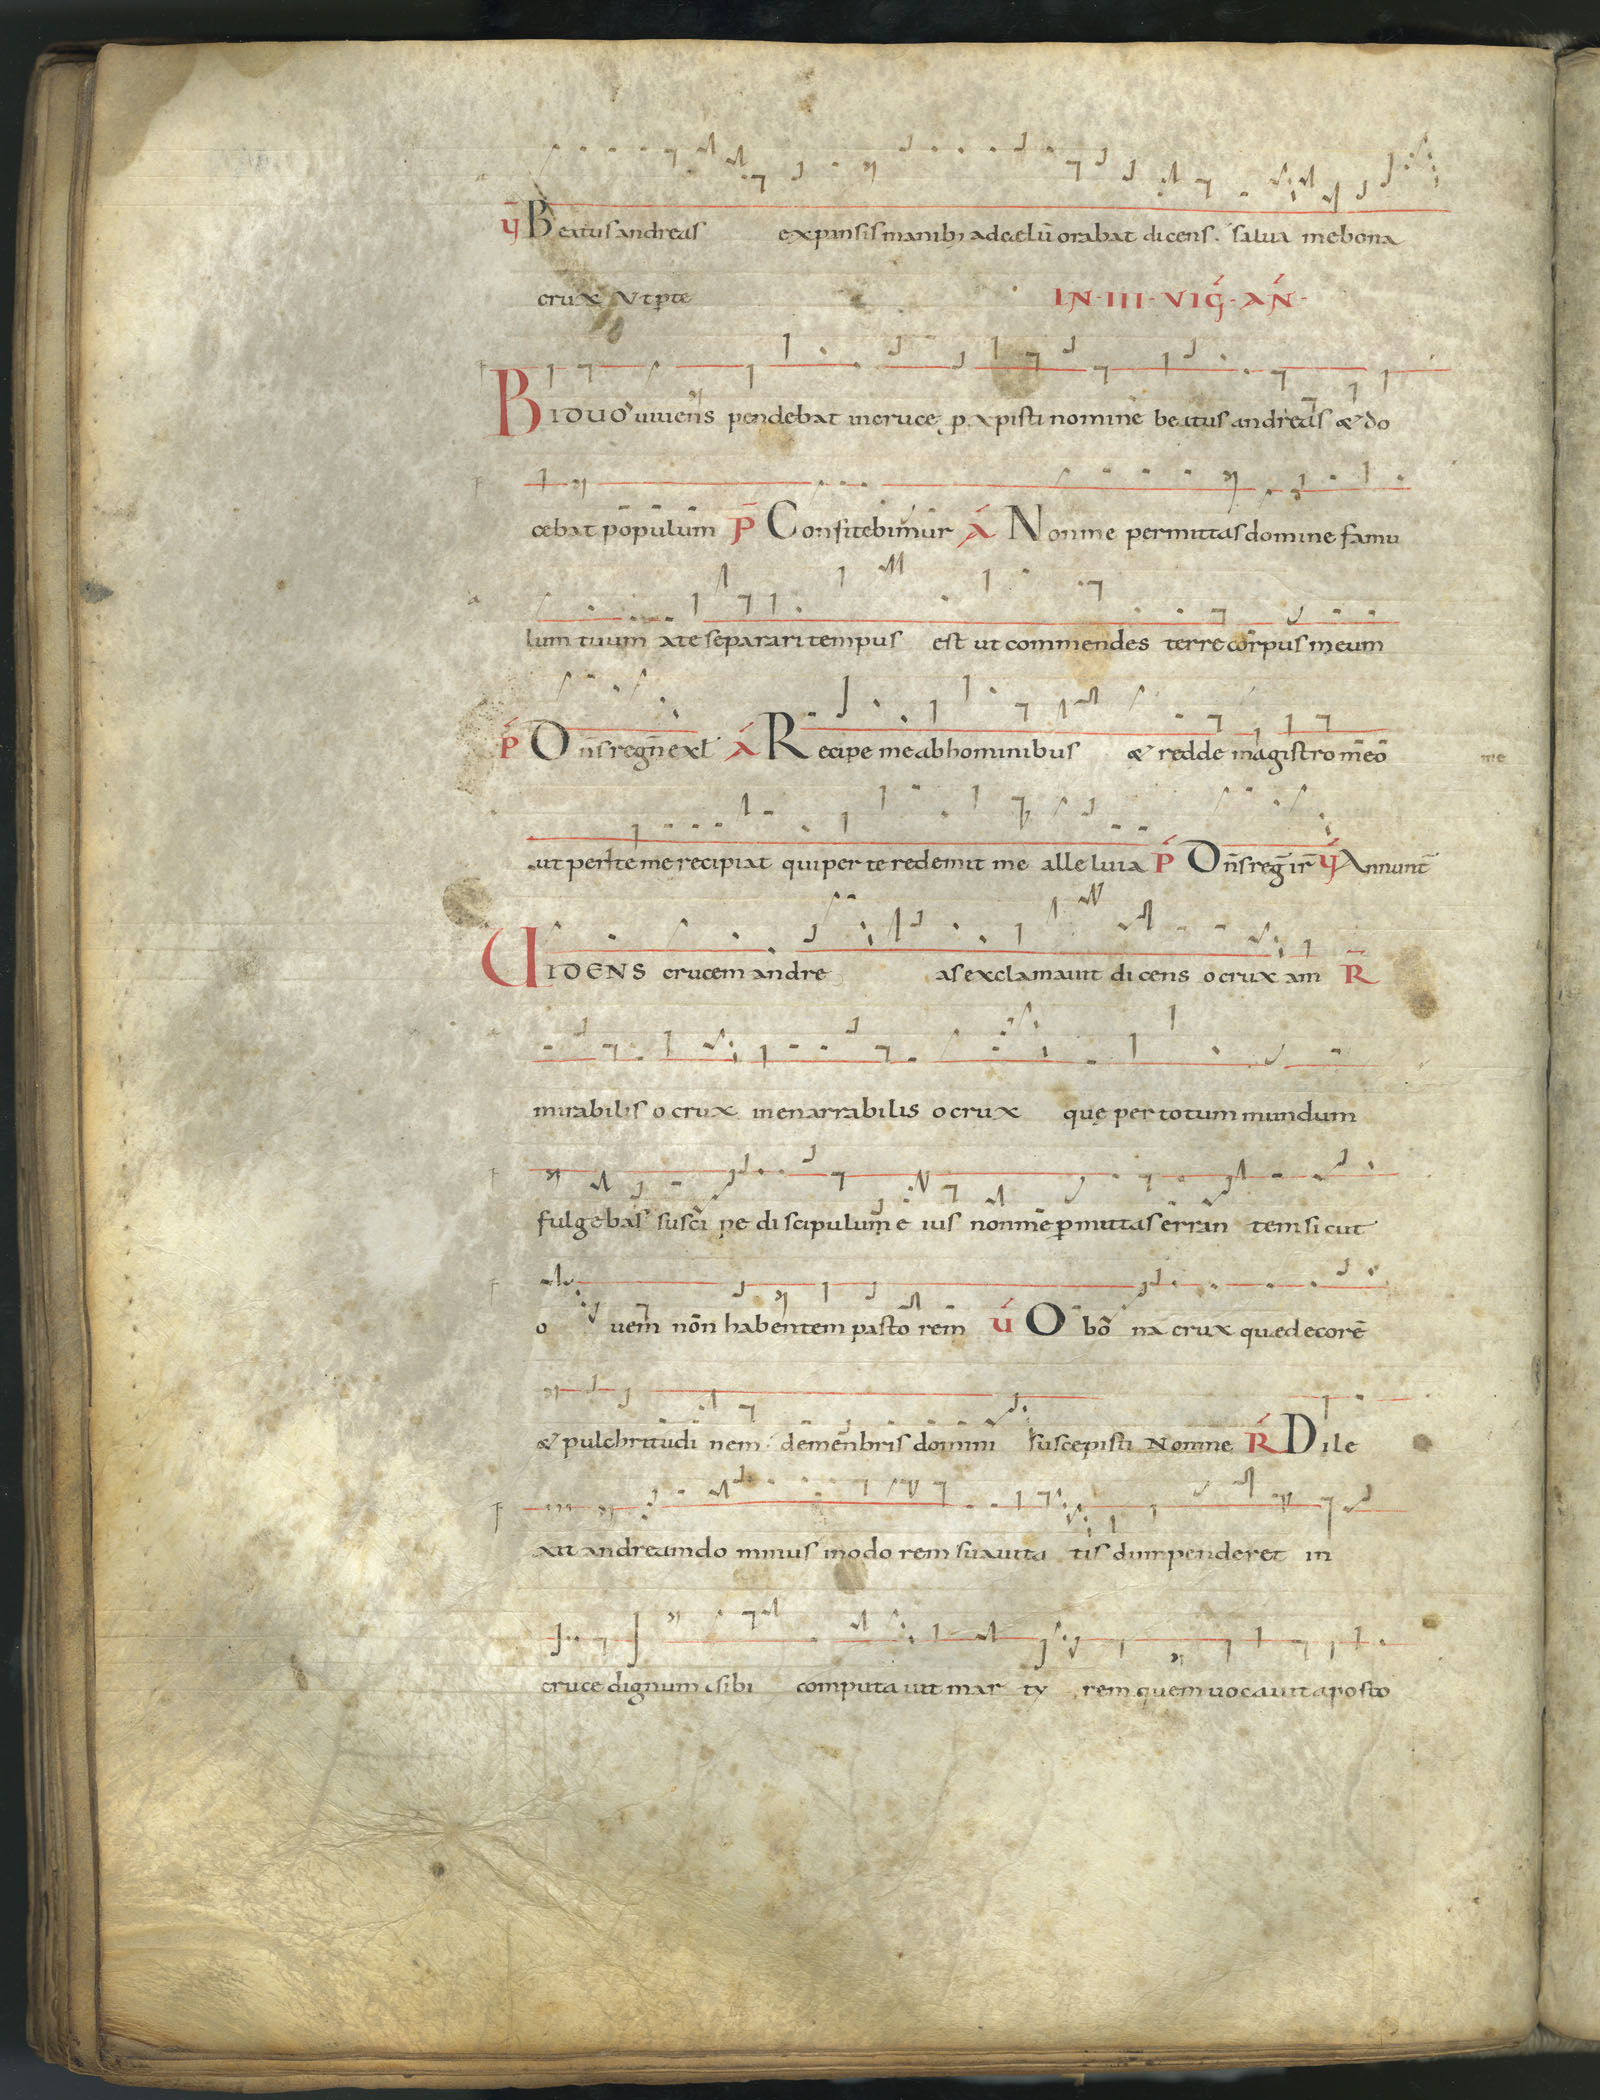 ỹ Beatus andreas expansis manib; ad celū orabat dicens. salua me bona
crux Vt p te IN·III·VIG̃·AÑ·
BIDUO uiuens pendebat in cruce p xpisti nomine beatus andreas & do
cebat populum P̄ Confitebimur Á Non me permittas domine famu
lum tuum a te separari tempus est ut commendes terre corpus meum
P̄ Dñs regñ exł Á Recipe me ab hominibus & redde magistro meo
me
ut per te me recipiat qui per te redemit me alleluia P̄ Dñs reḡ ir ỹ Annunt̄
UIDENS crucem andre as exclamauit dicens o crux am R̄
mirabilis o crux inenarrabilis o crux quę per totum mundum
fulgebas susci pe discipulum e ius non me pmittas erran tem sicut
o uem non habentem pasto rem Ú O bo na crux quæ decore
& pulchritudi nem de menbris domini suscepisti Non me Ŕ Dile
xit andream do minus in odo rem suauita tis dum penderet in
cruce dignum sibi computa uit mar ty rem quem uocauit aposto